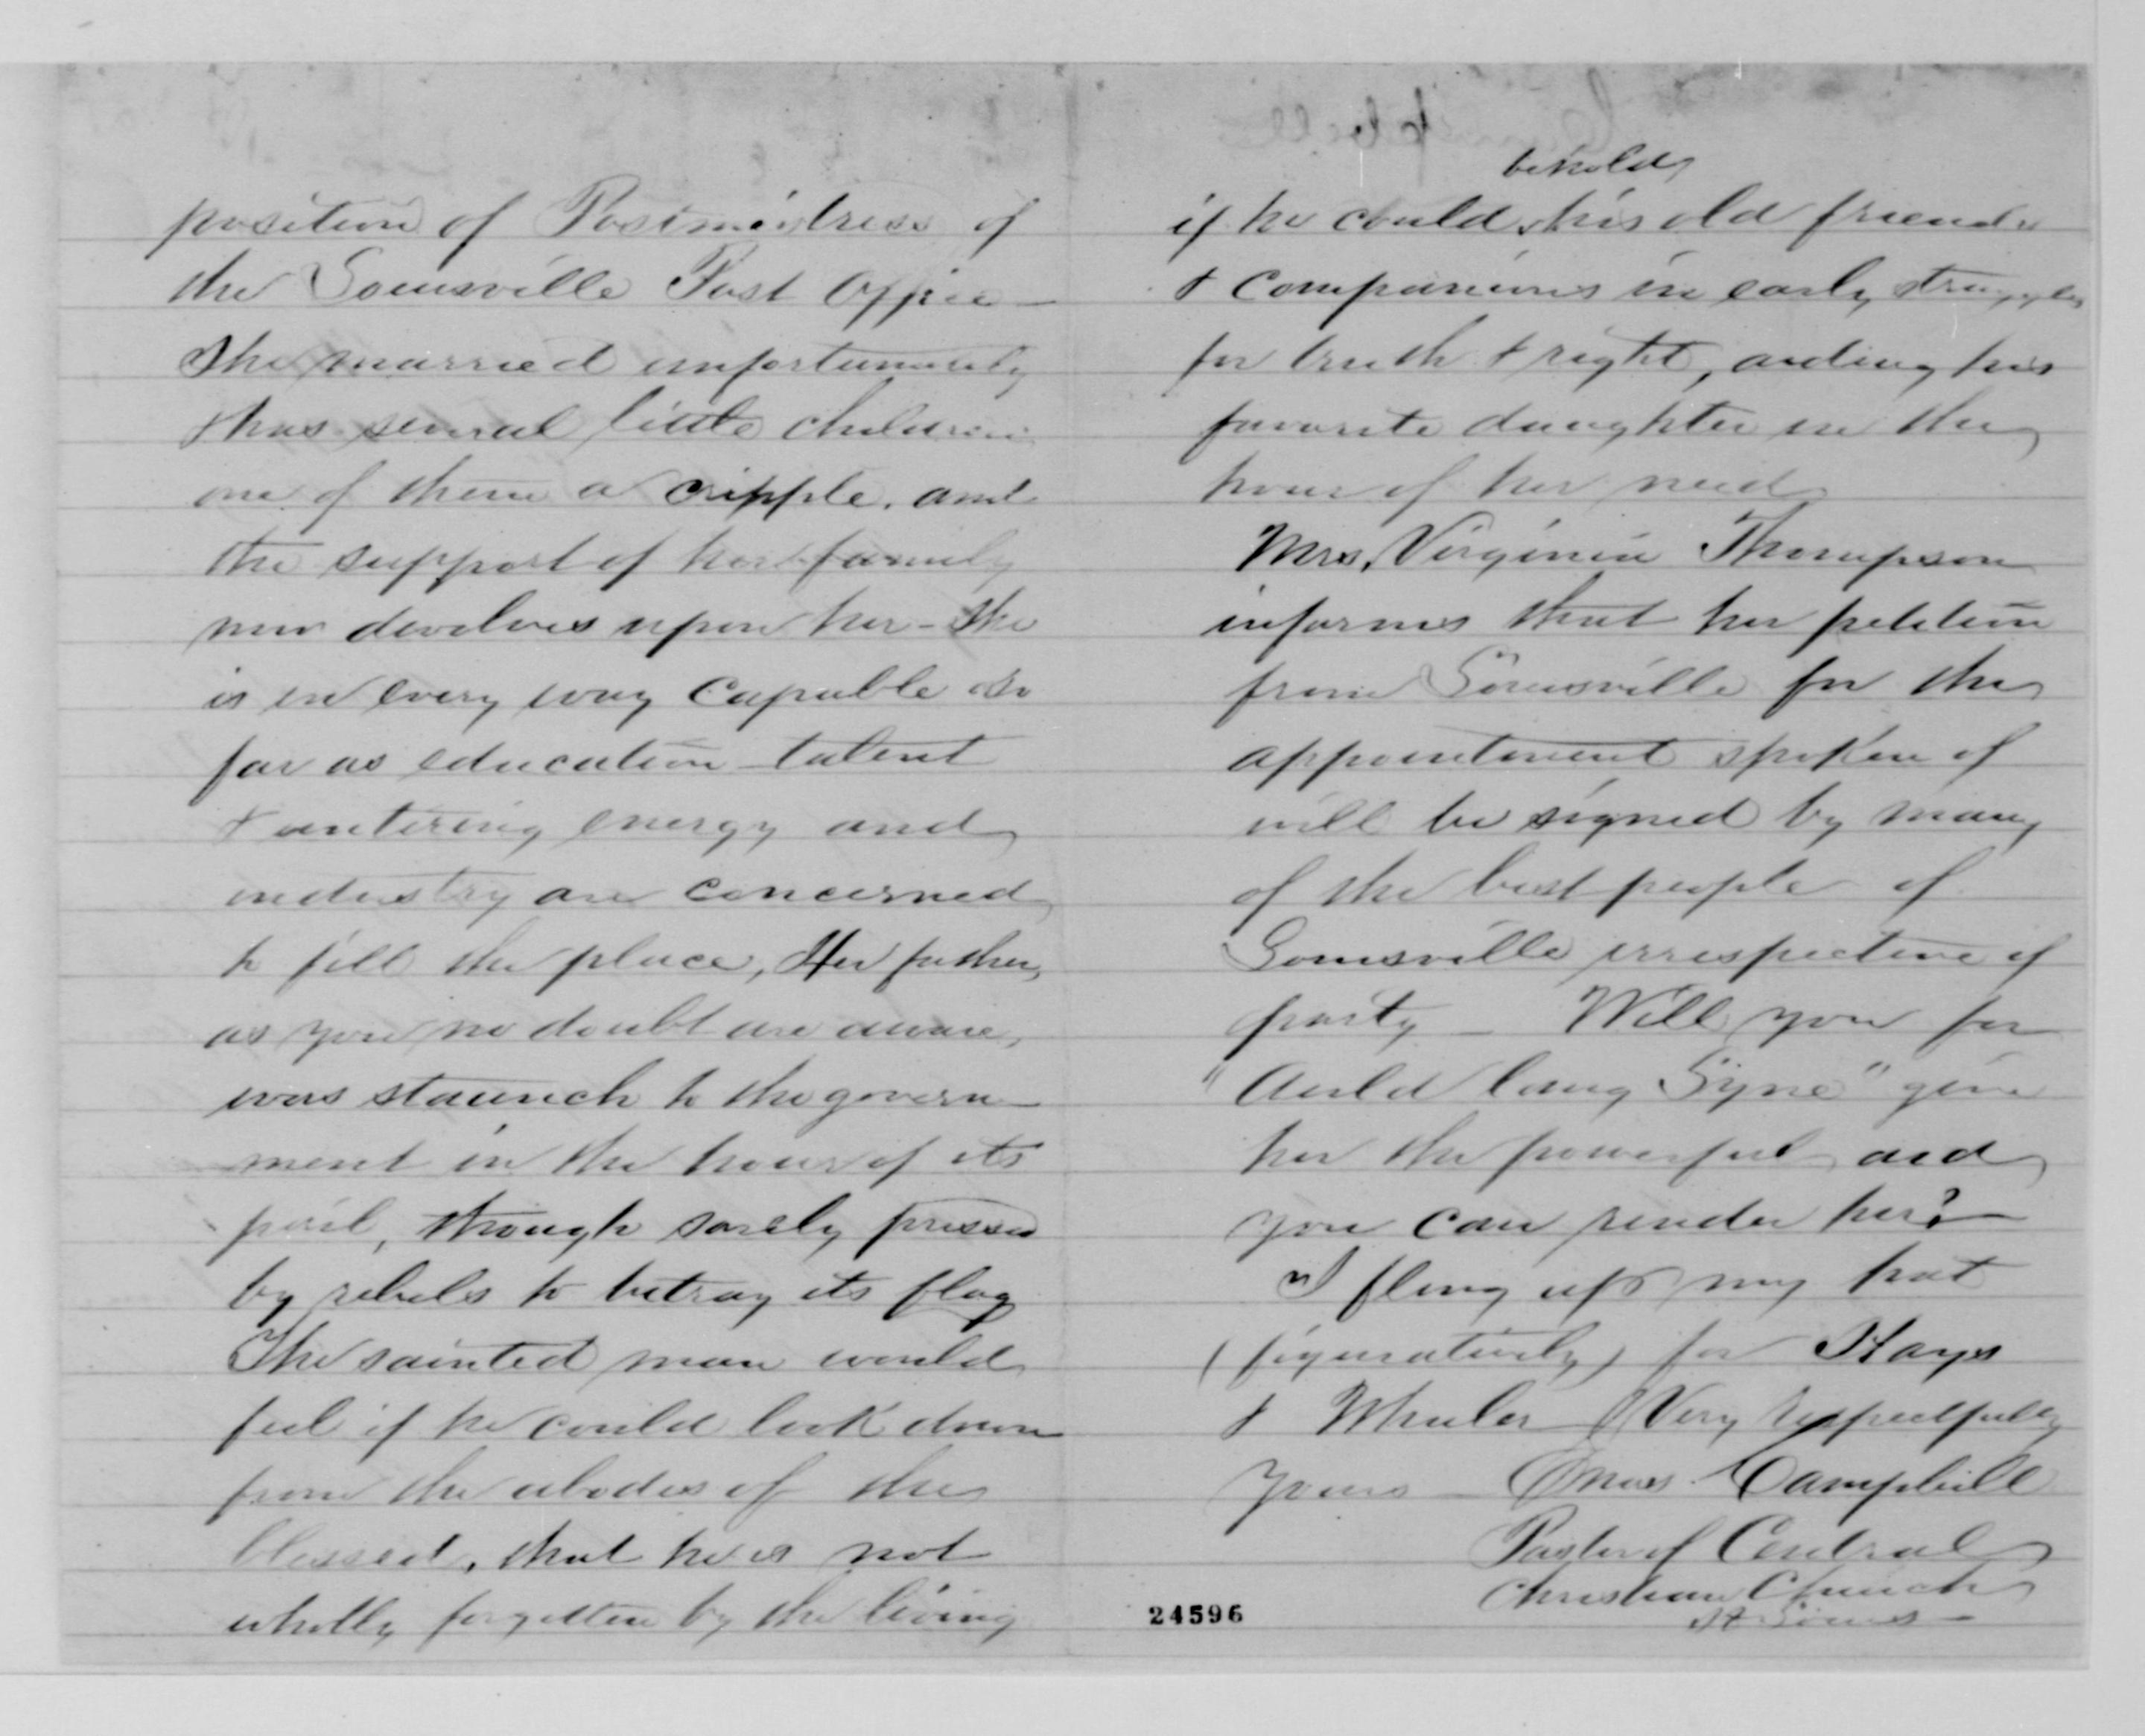 position of Postmistress of
the Louisville Post Office —
She married unfortunately
& has several little children
one of them a cripple. and
the support of her family
now devolves upon her - She
is in every way capable so
far as education talent
& untiring energy and
industry are concerned
to fill the place, Her father,
as you no doubt are aware,
was staunch to the govern-
ment in the hour of its
peril, though sorely pressed
by rebels to betray its flag
The sainted man would
feel if he could look down
from the abodes of the
blessed, that he is not
wholly forgotten by the living
behold
if he could his old friends
& companions in early struggles
for truth & right, aiding his
favorite daughter in the
hour of her need
Mrs. Virginia Thompson
informs that her petition
from Louisville for the
appointment spoken of
will be signed by many
of the best people of
Louisville irrespective of
party — Will you for
"Auld Lang Syne" give
her the powerful aid
you can render her? —
I fling up my hat
(figuratively) for Hayes
& Wheeler — Very respectfully
Yours — Enos Campbell
Pastor of Central
Christian Church
St Louis —
24596